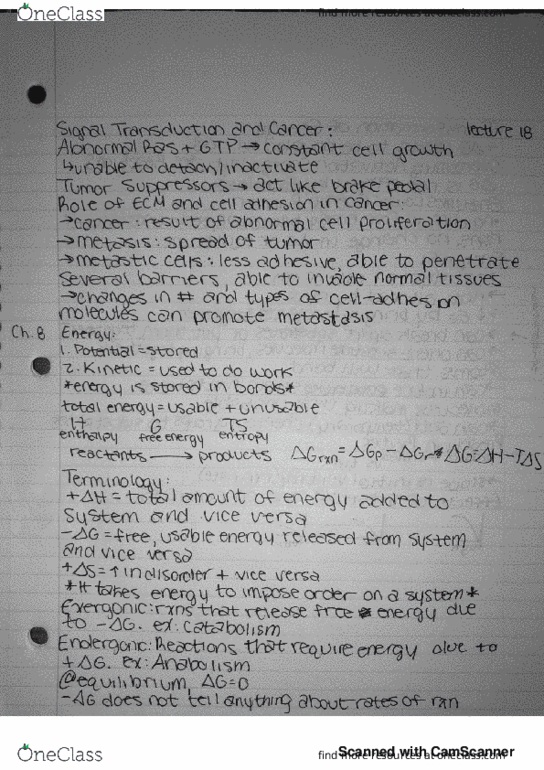 OneClass
find more resources at oneclass.com
Signal Transduction and Cancer: lecture 18
Abnormal Ras + GTP → constant cell growth
↳unable to detach/inactivate
Tumor Suppressors → act like brake pedal
Role of ECM and cell adhesion in cancer:
→cancer: result of abnormal cell proliferation
→metasis: spread of tumor
→metastic cells: less adhesive, able to penetrate
several barriers, able to invade normal tissues
→changes in # and types of cell-adhesion
molecules can promote metastasis
Ch. 8 Energy:
1. Potential = stored
2. Kinetic = used to do work
*energy is stored in bonds*
total energy = usable + unusable
H G TS
enthalpy free energy entropy
reactants → products ΔGrxn = ΔGp - ΔGr * ΔG=ΔH-TΔS
Terminology:
+ΔH = total amount of energy added to
system and vice versa
-ΔG = free, usable energy released from system
and vice versa
+ΔS = ↑ in disorder + vice versa
*It takes energy to impose order on a system*
Exergonic: rxns that release free energy due
to -ΔG. ex: catabolism
Endergonic: Reactions that require energy due to
+ΔG. ex: Anabolism
@equilibrium, ΔG=0
-ΔG does not tell anything about rates of rxn
OneClass
find more resources at oneclass.com
Scanned with CamScanner